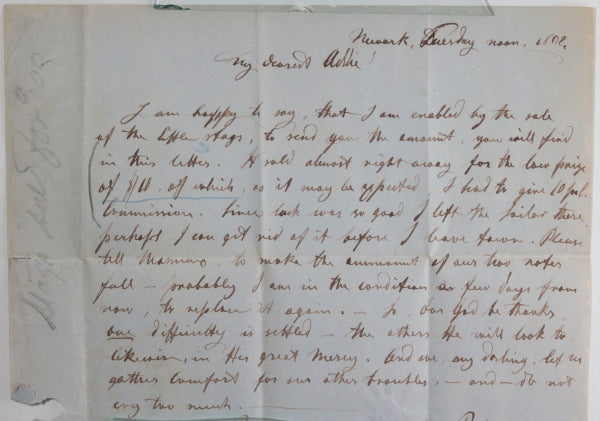 Newark, Tuesday noon.
My dearest Addie!
I am happy to say, that I am enabled by the sale
of the little stags, to send you the amount, you will find
in this letter. It sold almost right away for the low prize
of $10, of which, as it may be expected, I had to give 10 pct
Commission. Since luck was so good I left the Sailor there
perhaps I can get rid of it before I leave town. Please
tell to make the ammount of our two notes
full — probably I am in the condition a few days from
now, to replace it again. — So our God be thanks,
one difficulty is settled — the others He will look to
likewise, in His great Mercy. And we, my darling, let us
gather comfort for our other troubles, — and — do not
cry too much.